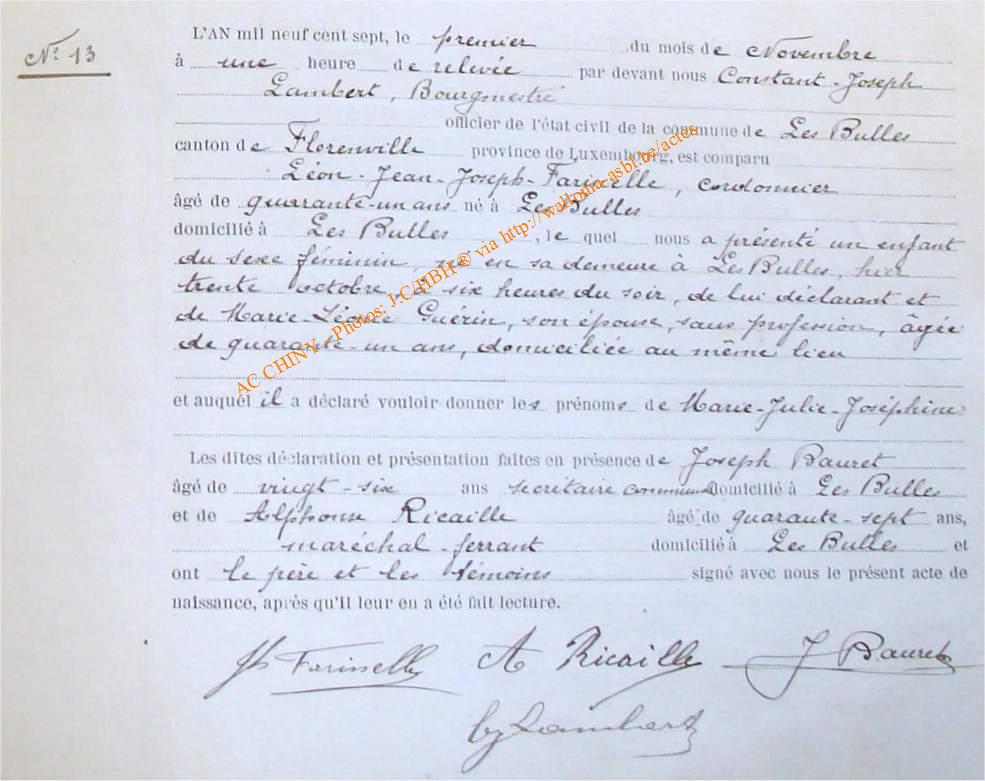 N° 13
L'AN mil neuf cent sept, le premier du mois de Novembre
à une heure de relevée par devant nous Constant-Joseph
Lambert, Bourgmestre
officier de l'état civil de la commune de Les Bulles
canton de Florenville province de Luxembourg, est comparu
Léon-Jean-Joseph-Farinelle, cordonnier
âgé de quarante-un ans né à Les Bulles
domicilié à Les Bulles, le quel nous a présenté un enfant
du sexe féminin, né en sa demeure à Les Bulles, hier
trente octobre, à six heures du soir, de lui déclarant et
de Marie-Léonie Guérin, son épouse, sans profession, âgée
de quarante-un ans, domiciliée au même lieu
et auquel il a déclaré vouloir donner les prénoms de Marie-Julie-Joséphine
Les dites déclaration et présentation faites en présence de Joseph Bauret
âgé de vingt-six ans secrétaire communal domicilié à Les Bulles
et de Alphonse Ricaille âgé de quarante-sept ans,
maréchal-ferrant domicilié à Les Bulles et
ont le père et les témoins signé avec nous le présent acte de
naissance, après qu'il leur en a été fait lecture.
Farinelle A Ricaille J Bauret
Lambert
AC CHINY - Photos: J.C.HBH® via http://wallonia-asbl.be/actes